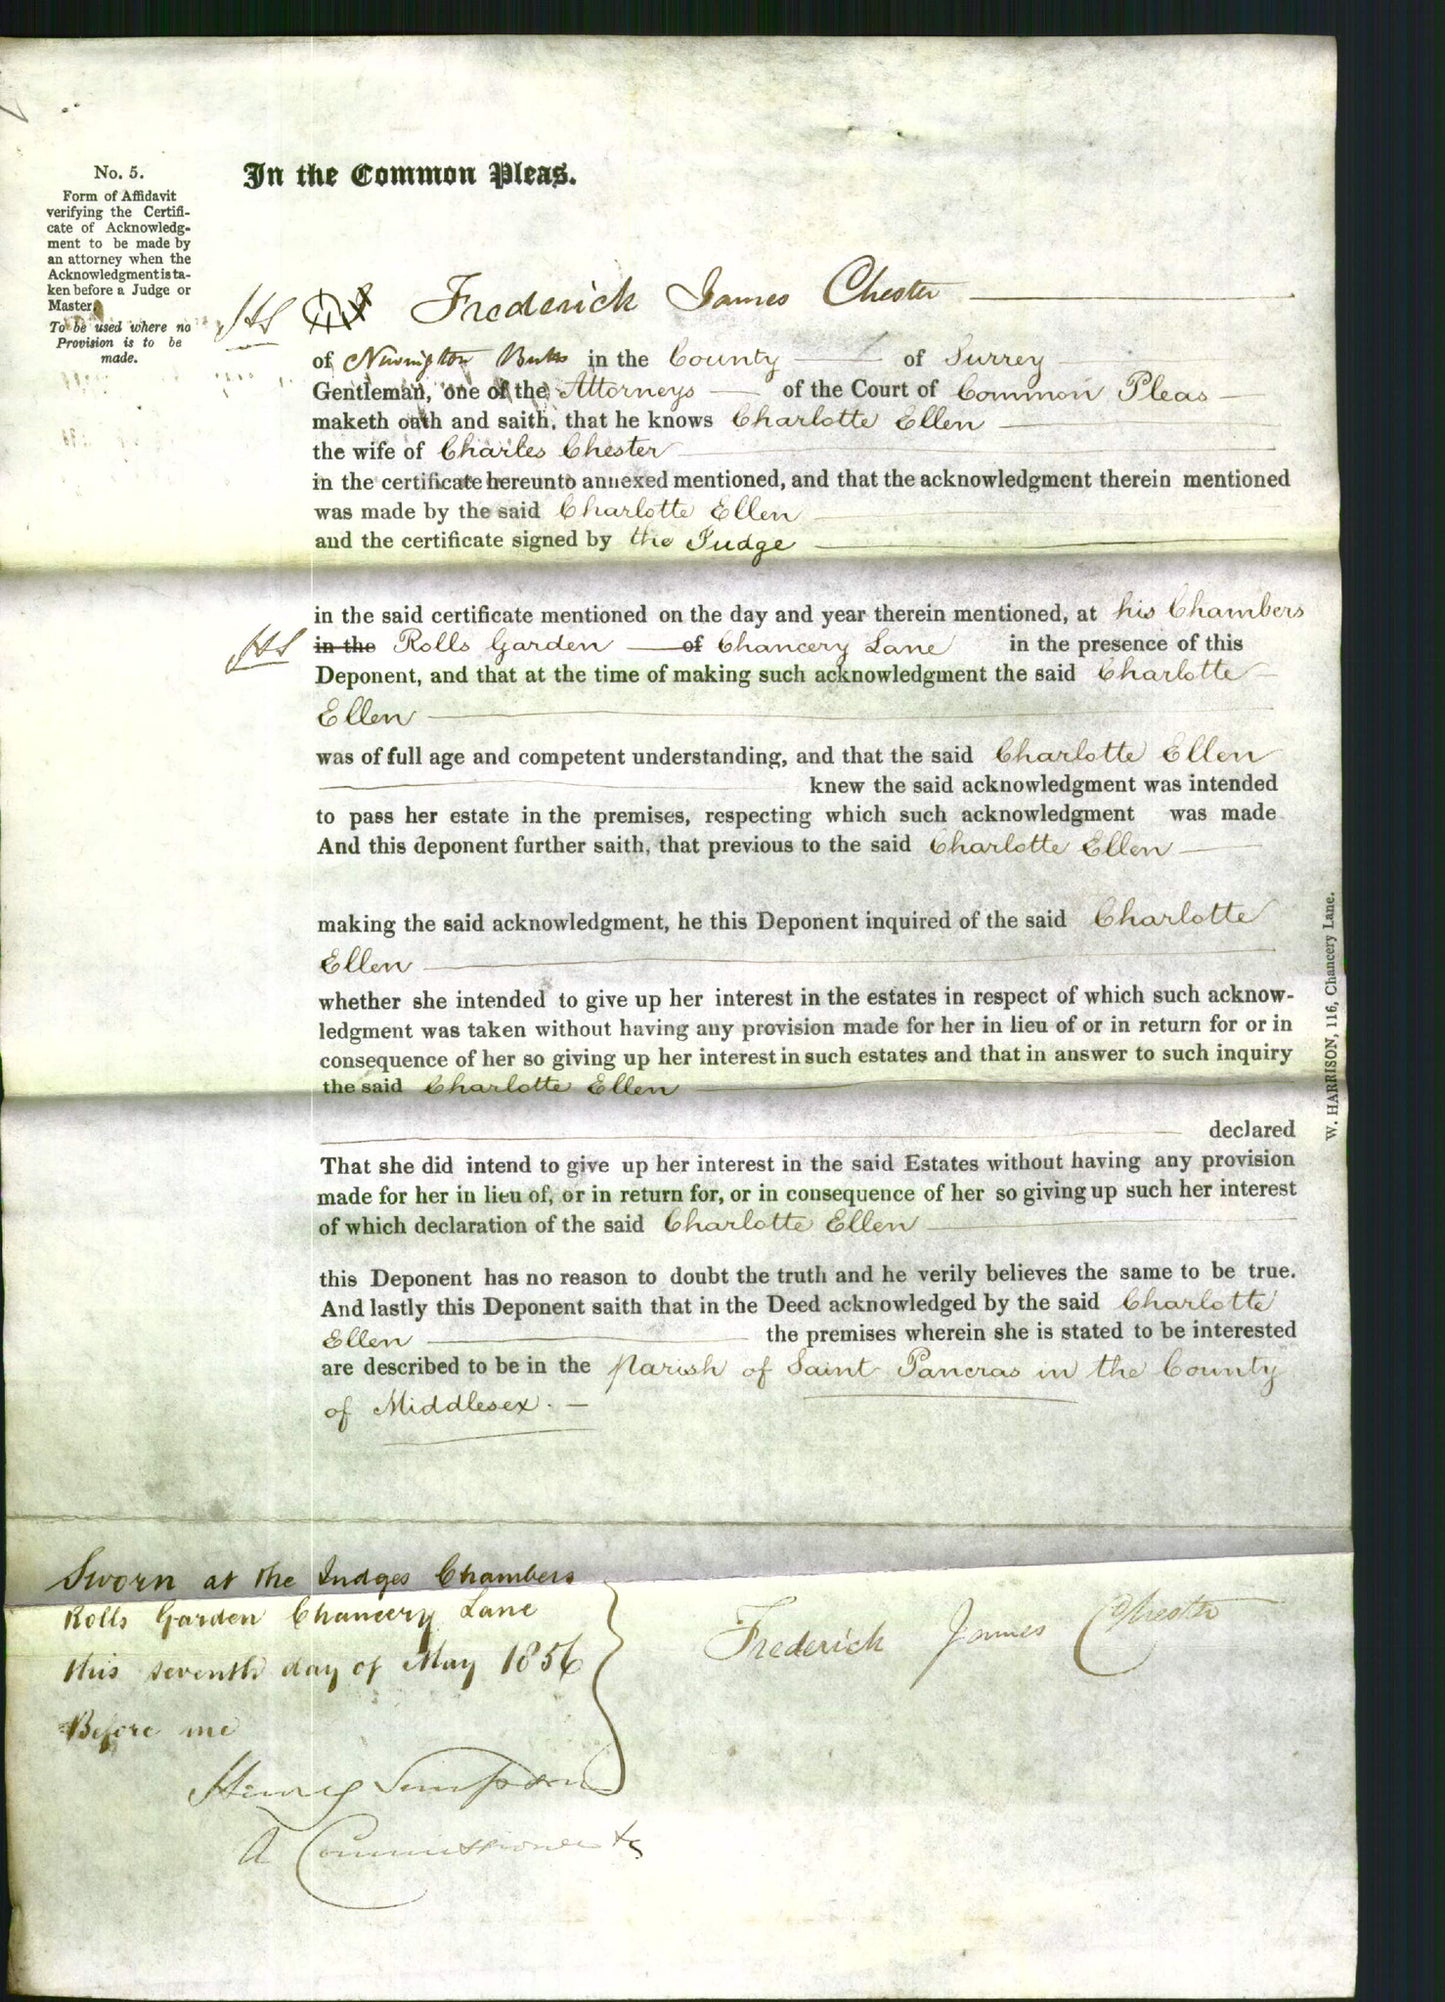 No. 5.
Form of Affidavit
verifying the Certifi-
cate of Acknowledg-
ment to be made by
an attorney when the
Acknowledgment is ta-
ken before a Judge or
Master.
To be used where no
Provision is to be
made.
In the Common Pleas.
HS Frederick James Chester
of Newington Butts in the County of Surrey
Gentleman, one of the Attorneys of the Court of Common Pleas
maketh oath and saith, that he knows Charlotte Ellen
the wife of Charles Chester
in the certificate hereunto annexed mentioned, and that the acknowledgment therein mentioned
was made by the said Charlotte Ellen
and the certificate signed by the Judge
in the said certificate mentioned on the day and year therein mentioned, at his Chambers
HS in the Rolls Garden of Chancery Lane in the presence of this
Deponent, and that at the time of making such acknowledgment the said Charlotte
Ellen
was of full age and competent understanding, and that the said Charlotte Ellen
knew the said acknowledgment was intended
to pass her estate in the premises, respecting which such acknowledgment was made
And this deponent further saith, that previous to the said Charlotte Ellen
making the said acknowledgment, he this Deponent inquired of the said Charlotte
Ellen
whether she intended to give up her interest in the estates in respect of which such acknow-
ledgment was taken without having any provision made for her in lieu of or in return for or in
consequence of her so giving up her interest in such estates and that in answer to such inquiry
the said Charlotte Ellen
declared
That she did intend to give up her interest in the said Estates without having any provision
made for her in lieu of, or in return for, or in consequence of her so giving up such her interest
of which declaration of the said Charlotte Ellen
this Deponent has no reason to doubt the truth and he verily believes the same to be true.
And lastly this Deponent saith that in the Deed acknowledged by the said Charlotte
Ellen the premises wherein she is stated to be interested
are described to be in the parish of Saint Pancras in the County
of Middlesex. -
W. HARRISON, 116, Chancery Lane.
Sworn at the Judges Chambers
Rolls Garden Chancery Lane
this seventh day of May 1856
Before me
Henry Simpson
A Commissioner &c
Frederick James Chester